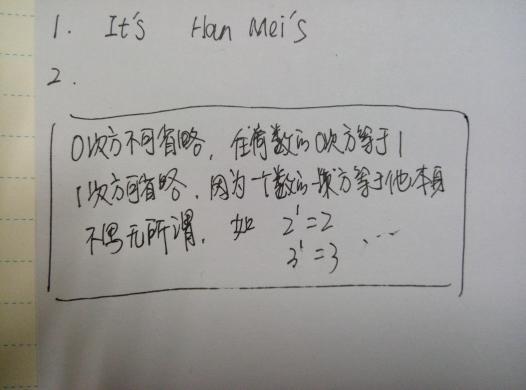 1. It's Han Mei's
2.
0次方不可省略，任何数的0次方等于1
1次方可省略，因为一个数的一次方等于他本身
不写无所谓，如 2¹=2
3¹=3 ……